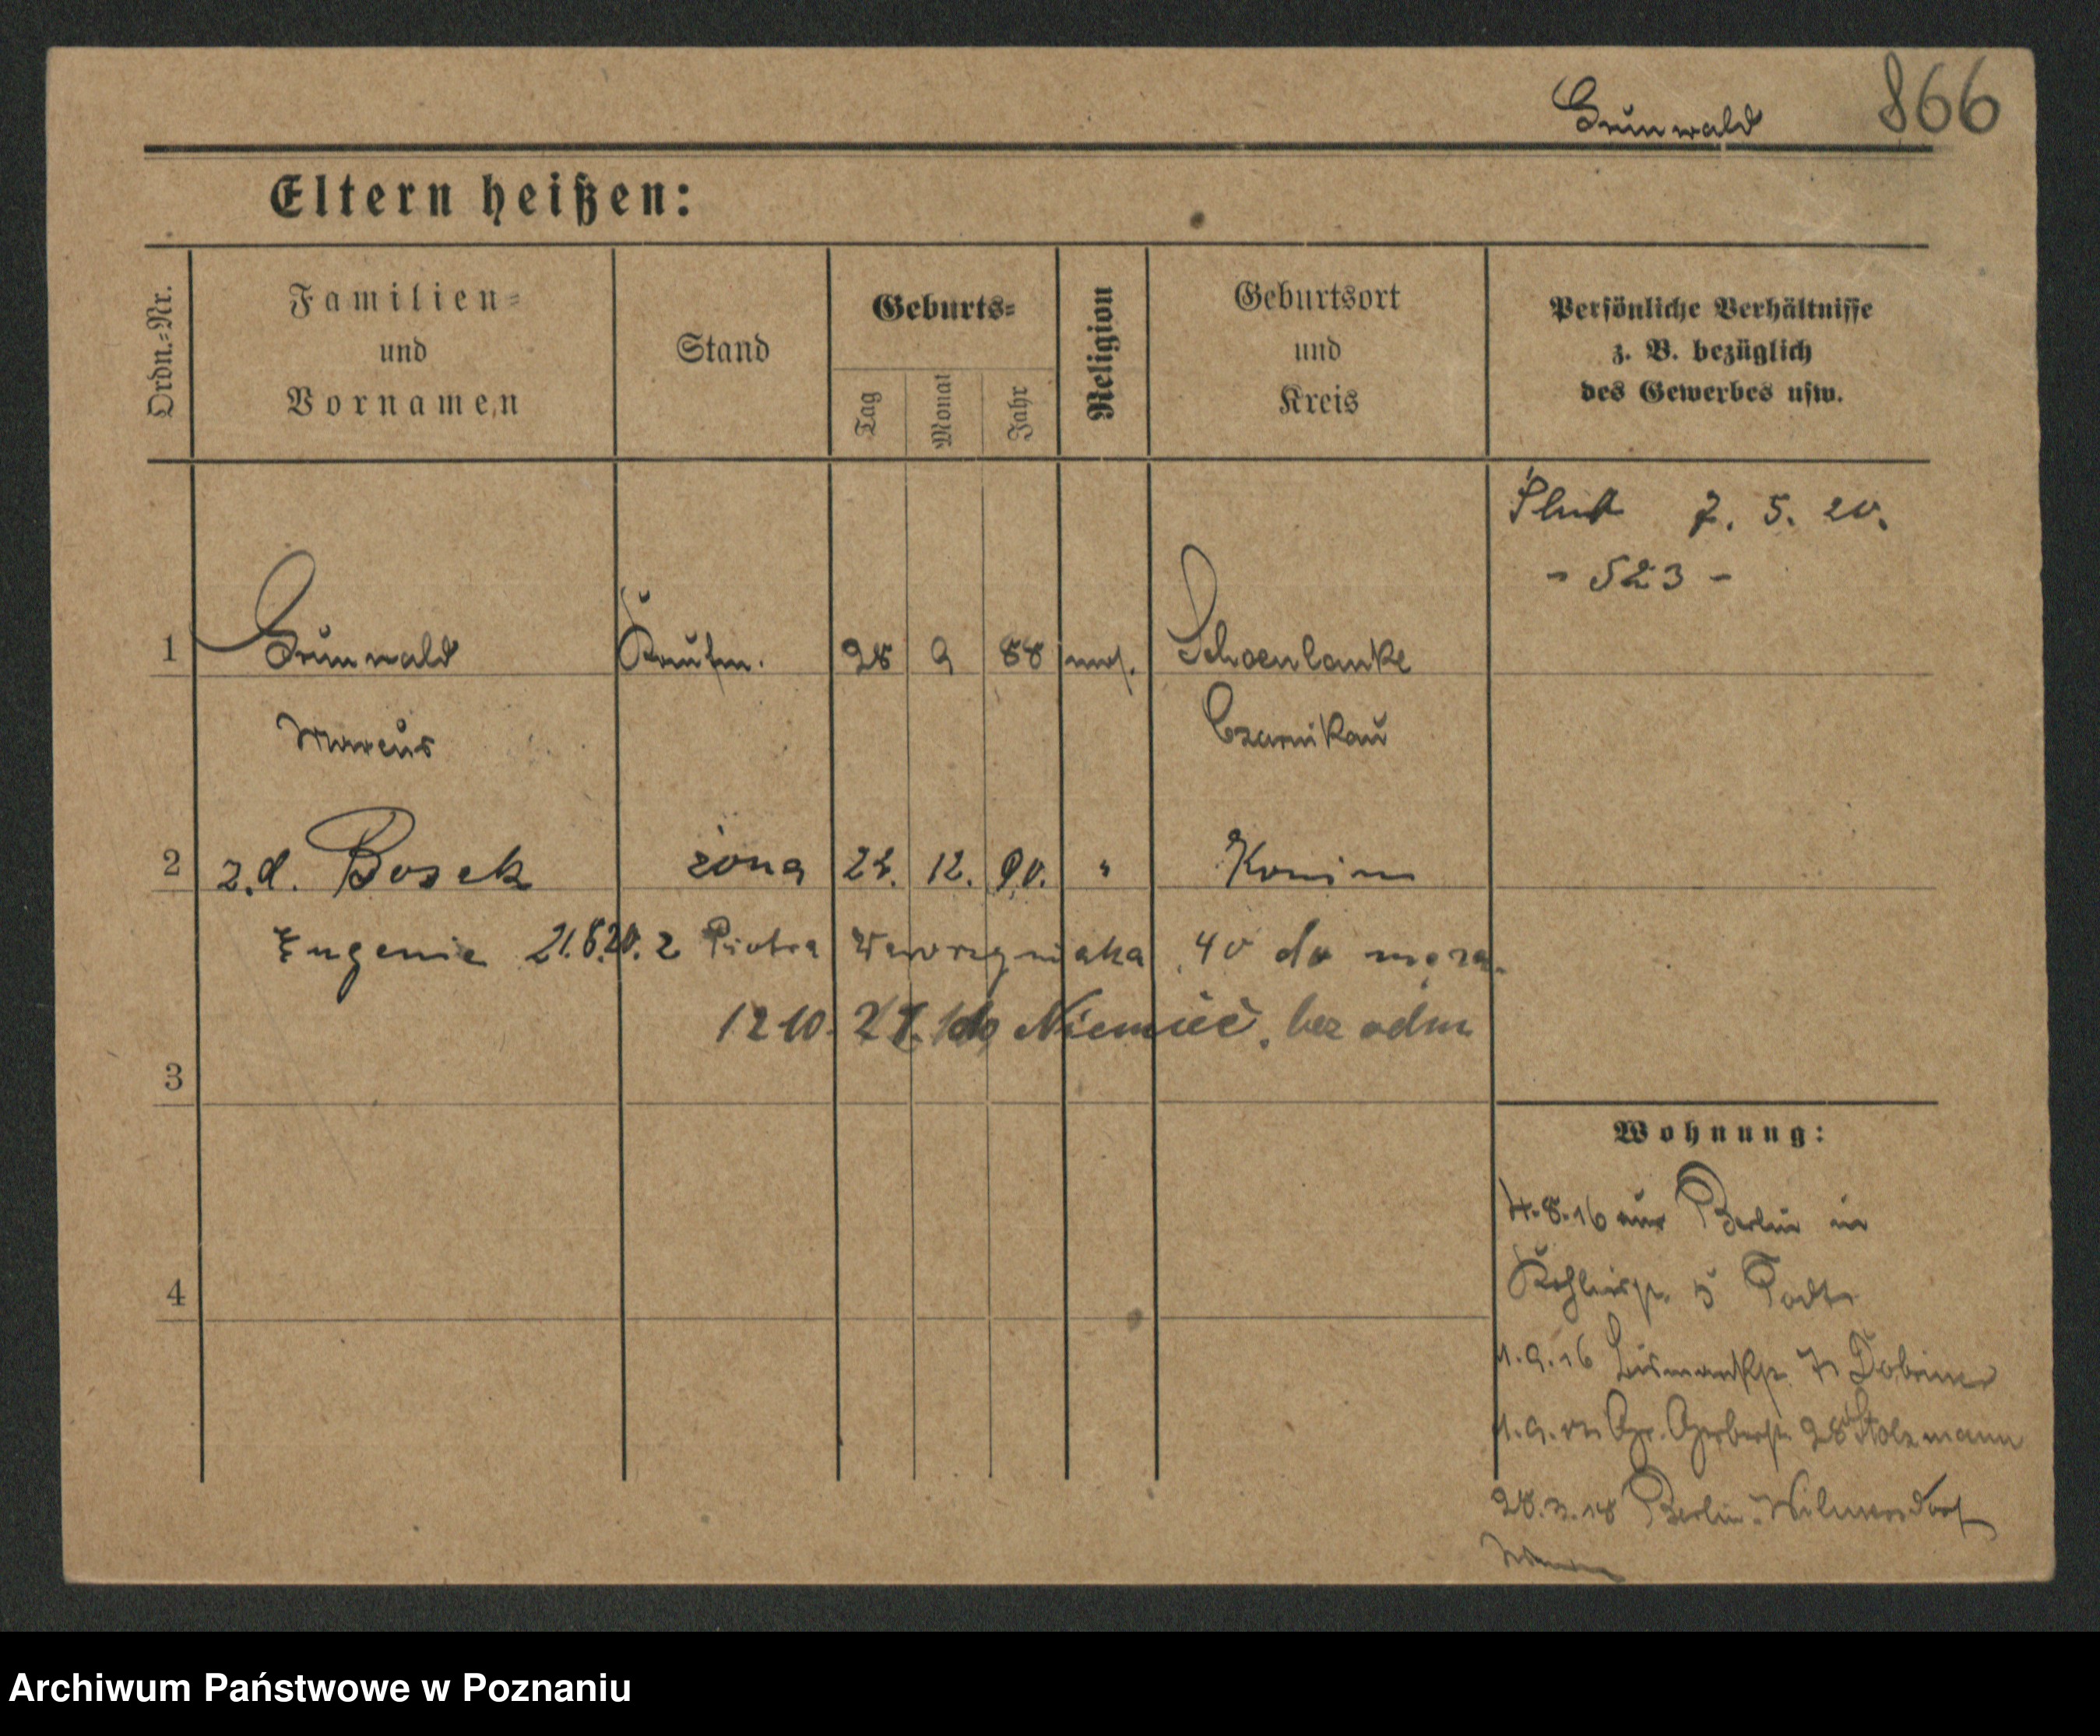 Grünwald 866
Eltern heißen:
Ordn.-Nr.
Familien-
und
Vornamen
Stand
Geburts-
Tag
Monat
Jahr
Religion
Geburtsort
und
Kreis
Persönliche Verhältnisse
z. B. bezüglich
des Gewerbes usw.
Ślub 7. 5. 20.
- 523 -
1 Grünwald Kaufm. 28 9 88 mos. Schoenlanke
Marcus Czarnikau
2 z.d. Bosek żona 24. 12. 90. " Konin
Eugenie 21.8.20. z Piotra Wawrzyniaka 40 do męża.
12 10. 21. do Niemiec. bez odm
3
Wohnung:
4.8.16 aus Berlin in
5
4
1.9.16 Bismarckstr. 7 Dobriner
1.9.17 Gr. Gerberstr. 28 Stolzmann
28.3.18 Berlin-Wilmersdorf
Archiwum Państwowe w Poznaniu